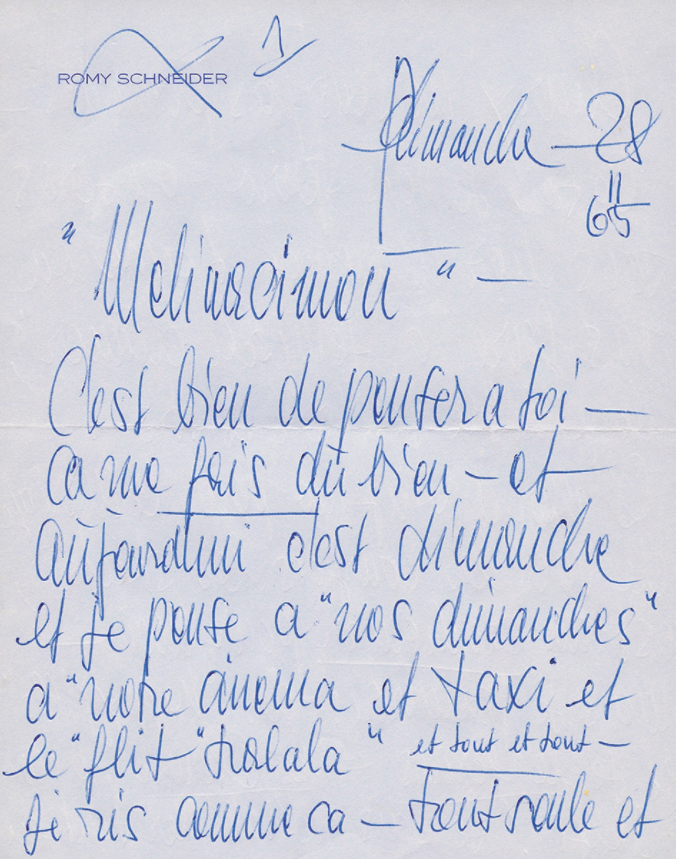 ROMY SCHNEIDER
1
Dimanche – 28
11
65
"Melinacimou" –
C'est bien de penser a toi –
ca me fais du bien – et
aujourdhui c'est dimanche
et je pense a "nos dimanches"
a "notre cinema et taxi et
le "flit "tralala" et tout et tout –
je ris comme ca – tout seule et